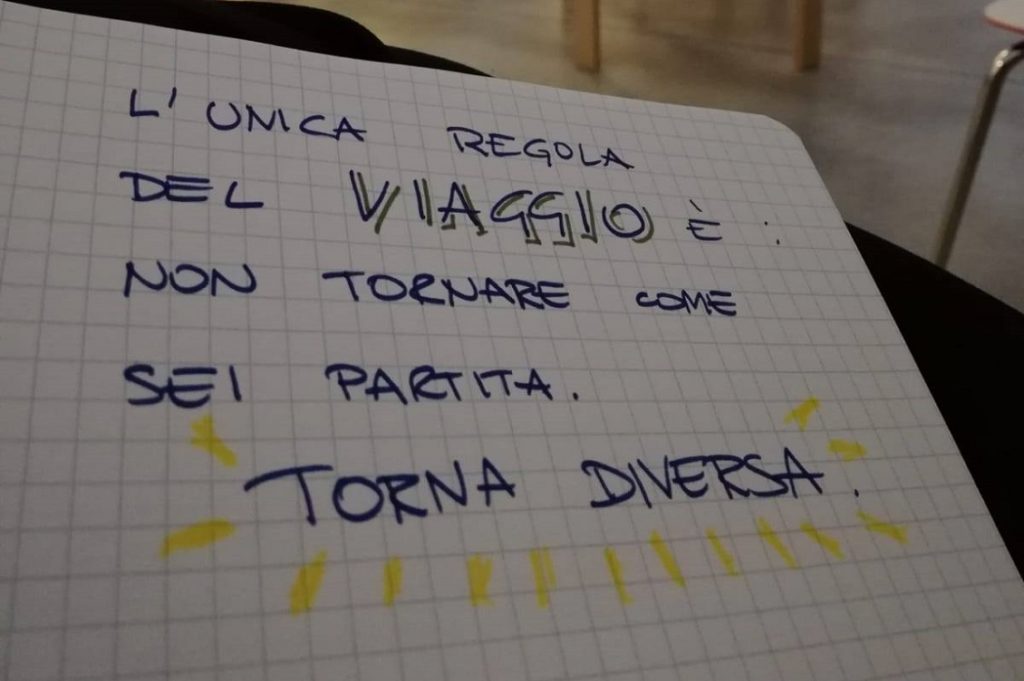 L'UNICA REGOLA
DEL VIAGGIO È :
NON TORNARE COME
SEI PARTITA.
TORNA DIVERSA.